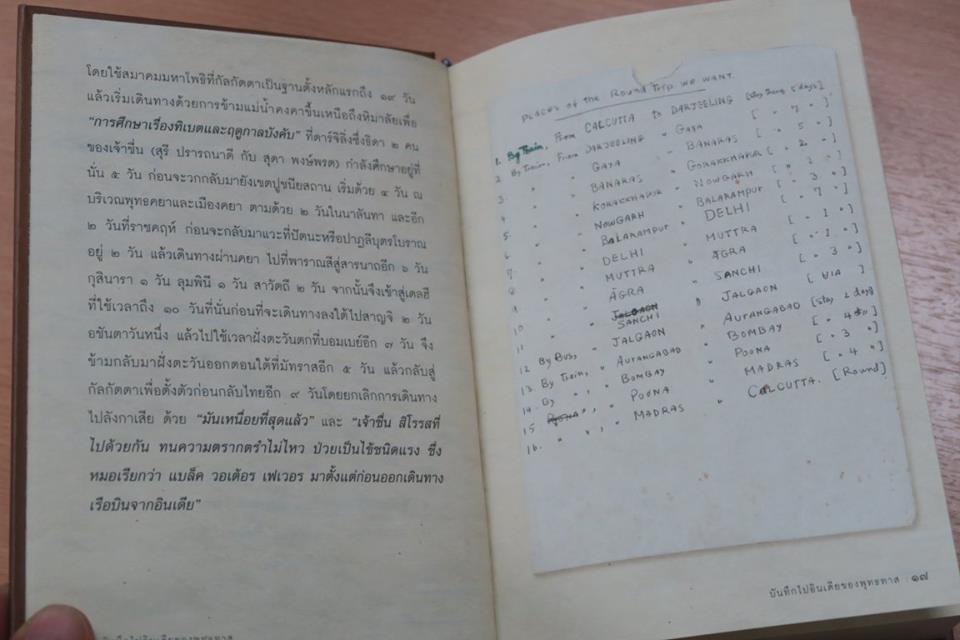 โดยใช้สมาคมมหาโพธิที่กัลกัตตาเป็นฐานตั้งหลักแรกถึง ๑๙ วัน
แล้วเริ่มเดินทางด้วยการข้ามแม่น้ำคงคาขึ้นเหนือถึงหิมาลัยเพื่อ
"การศึกษาเรื่องทิเบตและฤดูกาลบังคับ" ที่ดาร์จีลิ่งซึ่งธิดา ๒ คน
ของเจ้าชื่น (สุรี ปรารถนาดี กับ สุดา พงษ์พรต) กำลังศึกษาอยู่ที่
นั่น ๕ วัน ก่อนจะวกกลับมายังเขตปูชนียสถาน เริ่มด้วย ๔ วัน ณ
บริเวณพุทธคยาและเมืองคยา ตามด้วย ๒ วันในนาลันทา และอีก
๒ วันที่ราชคฤห์ ก่อนจะกลับมาแวะที่ปัตนะหรือปาฏลีบุตรโบราณ
อยู่ ๒ วัน แล้วเดินทางผ่านคยา ไปที่พาราณสีสู่สารนาถอีก ๖ วัน
กุสินารา ๑ วัน ลุมพินี ๑ วัน สาวัตถี ๒ วัน จากนั้นจึงเข้าสู่เดลฮี
ที่ใช้เวลาถึง ๑๐ วันที่นั่นก่อนที่จะเดินทางลงใต้ไปสาญจิ ๒ วัน
อชันตาวันหนึ่ง แล้วไปใช้เวลาฝั่งตะวันตกที่บอมเบย์อีก ๓ วัน จึง
ข้ามกลับมาฝั่งตะวันออกตอนใต้ที่มัทราสอีก ๕ วัน แล้วกลับสู่
กัลกัตตาเพื่อตั้งตัวก่อนกลับไทยอีก ๙ วันโดยยกเลิกการเดินทาง
ไปลังกาเสีย ด้วย "มันเหนื่อยที่สุดแล้ว" และ "เจ้าชื่น สิโรรสที่
ไปด้วยกัน ทนความตรากตรำไม่ไหว ป่วยเป็นไข้ชนิดแรง ซึ่ง
หมอเรียกว่า แบล็ค วอเต้อร เฟเวอร มาตั้งแต่ก่อนออกเดินทาง
เรือบินจากอินเดีย"
PLACES of the Round Trip WE WANT.
1. By Train, From CALCUTTA to DARJEELING [stay there 5 days]
2. By Train, From DARJEELING " GAYA [ " 7 " ]
3 " " GAYA " BANARAS [ " 5 " ]
4 " " BANARAS " GORAKKHAPUR [ " 2 " ]
5. " " KORAKKHAPUR " NOWGARH [ " 2 " ]
6 " " NOWGARH " BALARAMPUR [ " 3 " ]
7 " " BALARAMPUR " DELHI [ " 7 " ]
8 " " DELHI " MUTTRA [ " 1 " ]
9 " " MUTTRA " AGRA [ " 1 " ]
10 " " AGRA " SANCHI [ " 3 " ]
11 " " SANCHI " JALGAON [ VIA ]
12 By Bus, " JALGAON " AURANGABAD [stay 2 days]
13. By Train, " AURANGABAD " BOMBAY
14. By " , " BOMBAY " POONA [ " 3 " ]
15 " , " POONA " MADRAS [ " 4 " ]
16. " " , " MADRAS " CALCUTTA. [Round]
บันทึกไปอินเดียของพุทธทาส : ๑๗